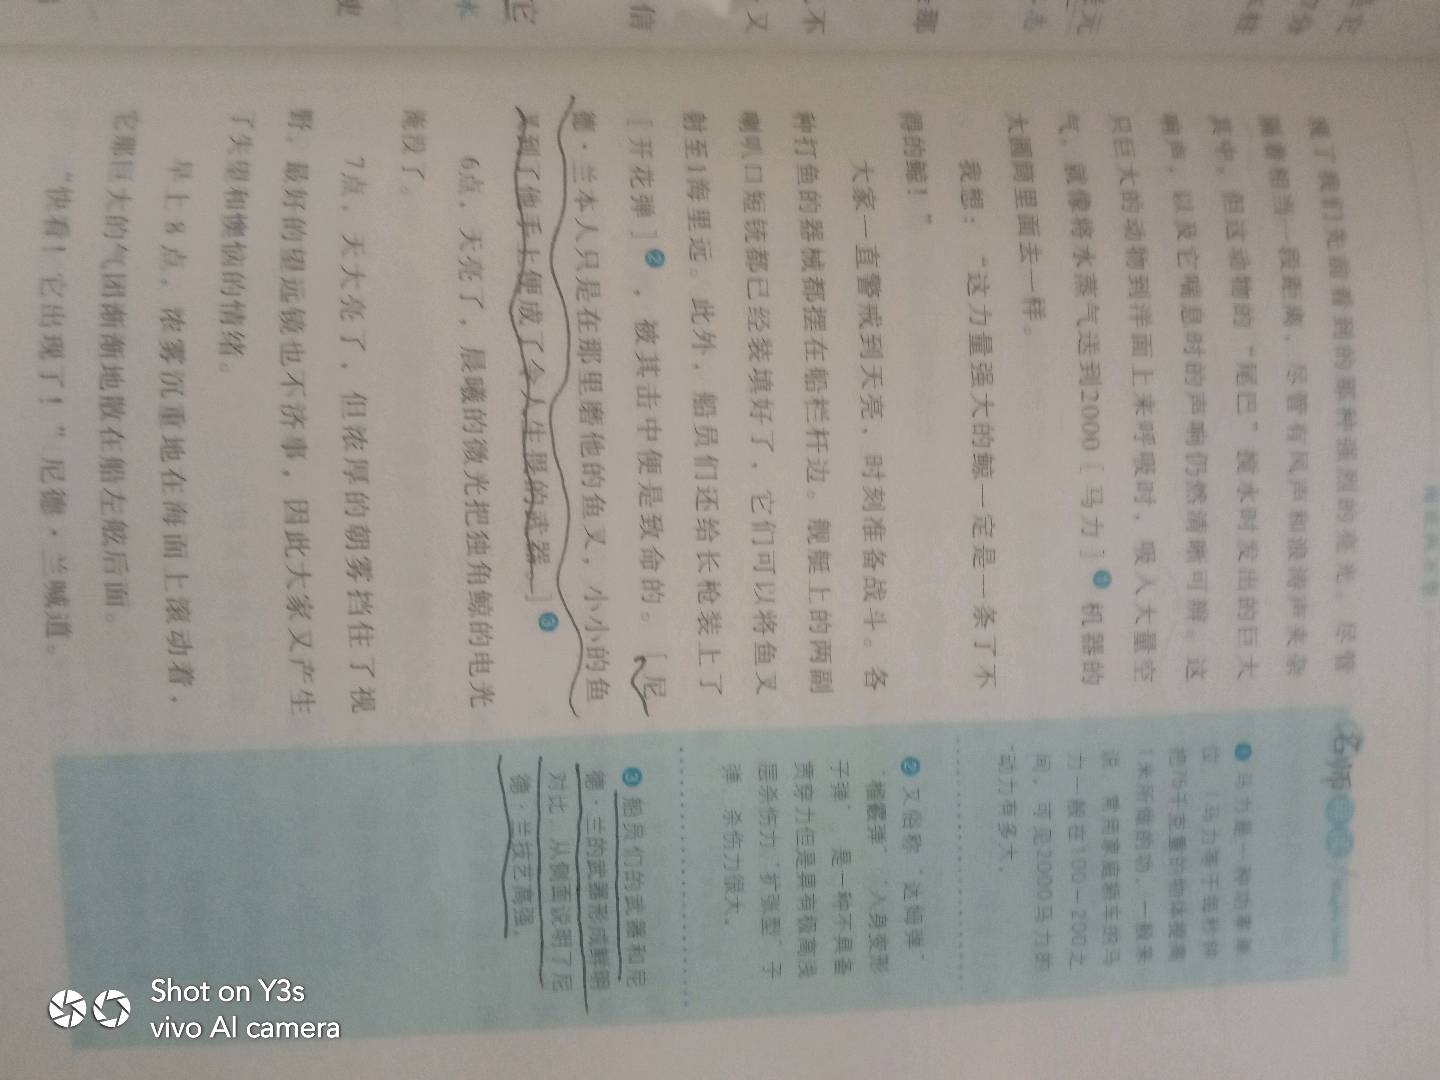 海底两万里
搅了我们先前看到的那种强烈的亮光。尽管
隔着相当一段距离，尽管有风声和浪涛声夹杂
其中，但这动物的“尾巴”搅水时发出的巨大
响声，以及它喘息时的声响仍然清晰可辨。这
只巨大的动物到洋面上来呼吸时，吸入大量空
气，就像将水蒸气送到2000［马力］❶机器的
大圆筒里面去一样。
我想：“这力量强大的鲸一定是一条了不
得的鲸！”
大家一直警戒到天亮，时刻准备战斗。各
种打鱼的器械都摆在船栏杆边。舰艇上的两副
喇叭口短铳都已经装填好了，它们可以将鱼叉
射至1海里远。此外，船员们还给长枪装上了
［开花弹］❷，被其击中便是致命的。［尼
德·兰本人只是在那里磨他的鱼叉，小小的鱼
叉到了他手上便成了令人生畏的武器。］❸
6点，天亮了，晨曦的微光把独角鲸的电光
淹没了。
7点，天大亮了，但浓厚的朝雾挡住了视
野，最好的望远镜也不济事，因此大家又产生
了失望和懊恼的情绪。
早上8点，浓雾沉重地在海面上滚动着，
它那巨大的气团渐渐地散在船左舷后面。
“快看！它出现了！”尼德·兰喊道。
名师
❶ 马力是一种功率单
位，1马力等于每秒钟
把75千克重的物体提高
1米所做的功。一般来
说，常用家庭轿车的马
力一般在100～200之
间，可见2000马力的
动力有多大。
❷ 又俗称“达姆弹”
“榴霰弹”“入身变形
子弹”，是一种不具备
贯穿力但是具有极高浅
层杀伤力“扩张型”子
弹，杀伤力很大。
❸ 船员们的武器和尼
德·兰的武器形成鲜明
对比，从侧面说明了尼
德·兰技艺高强。
Shot on Y3s
vivo AI camera